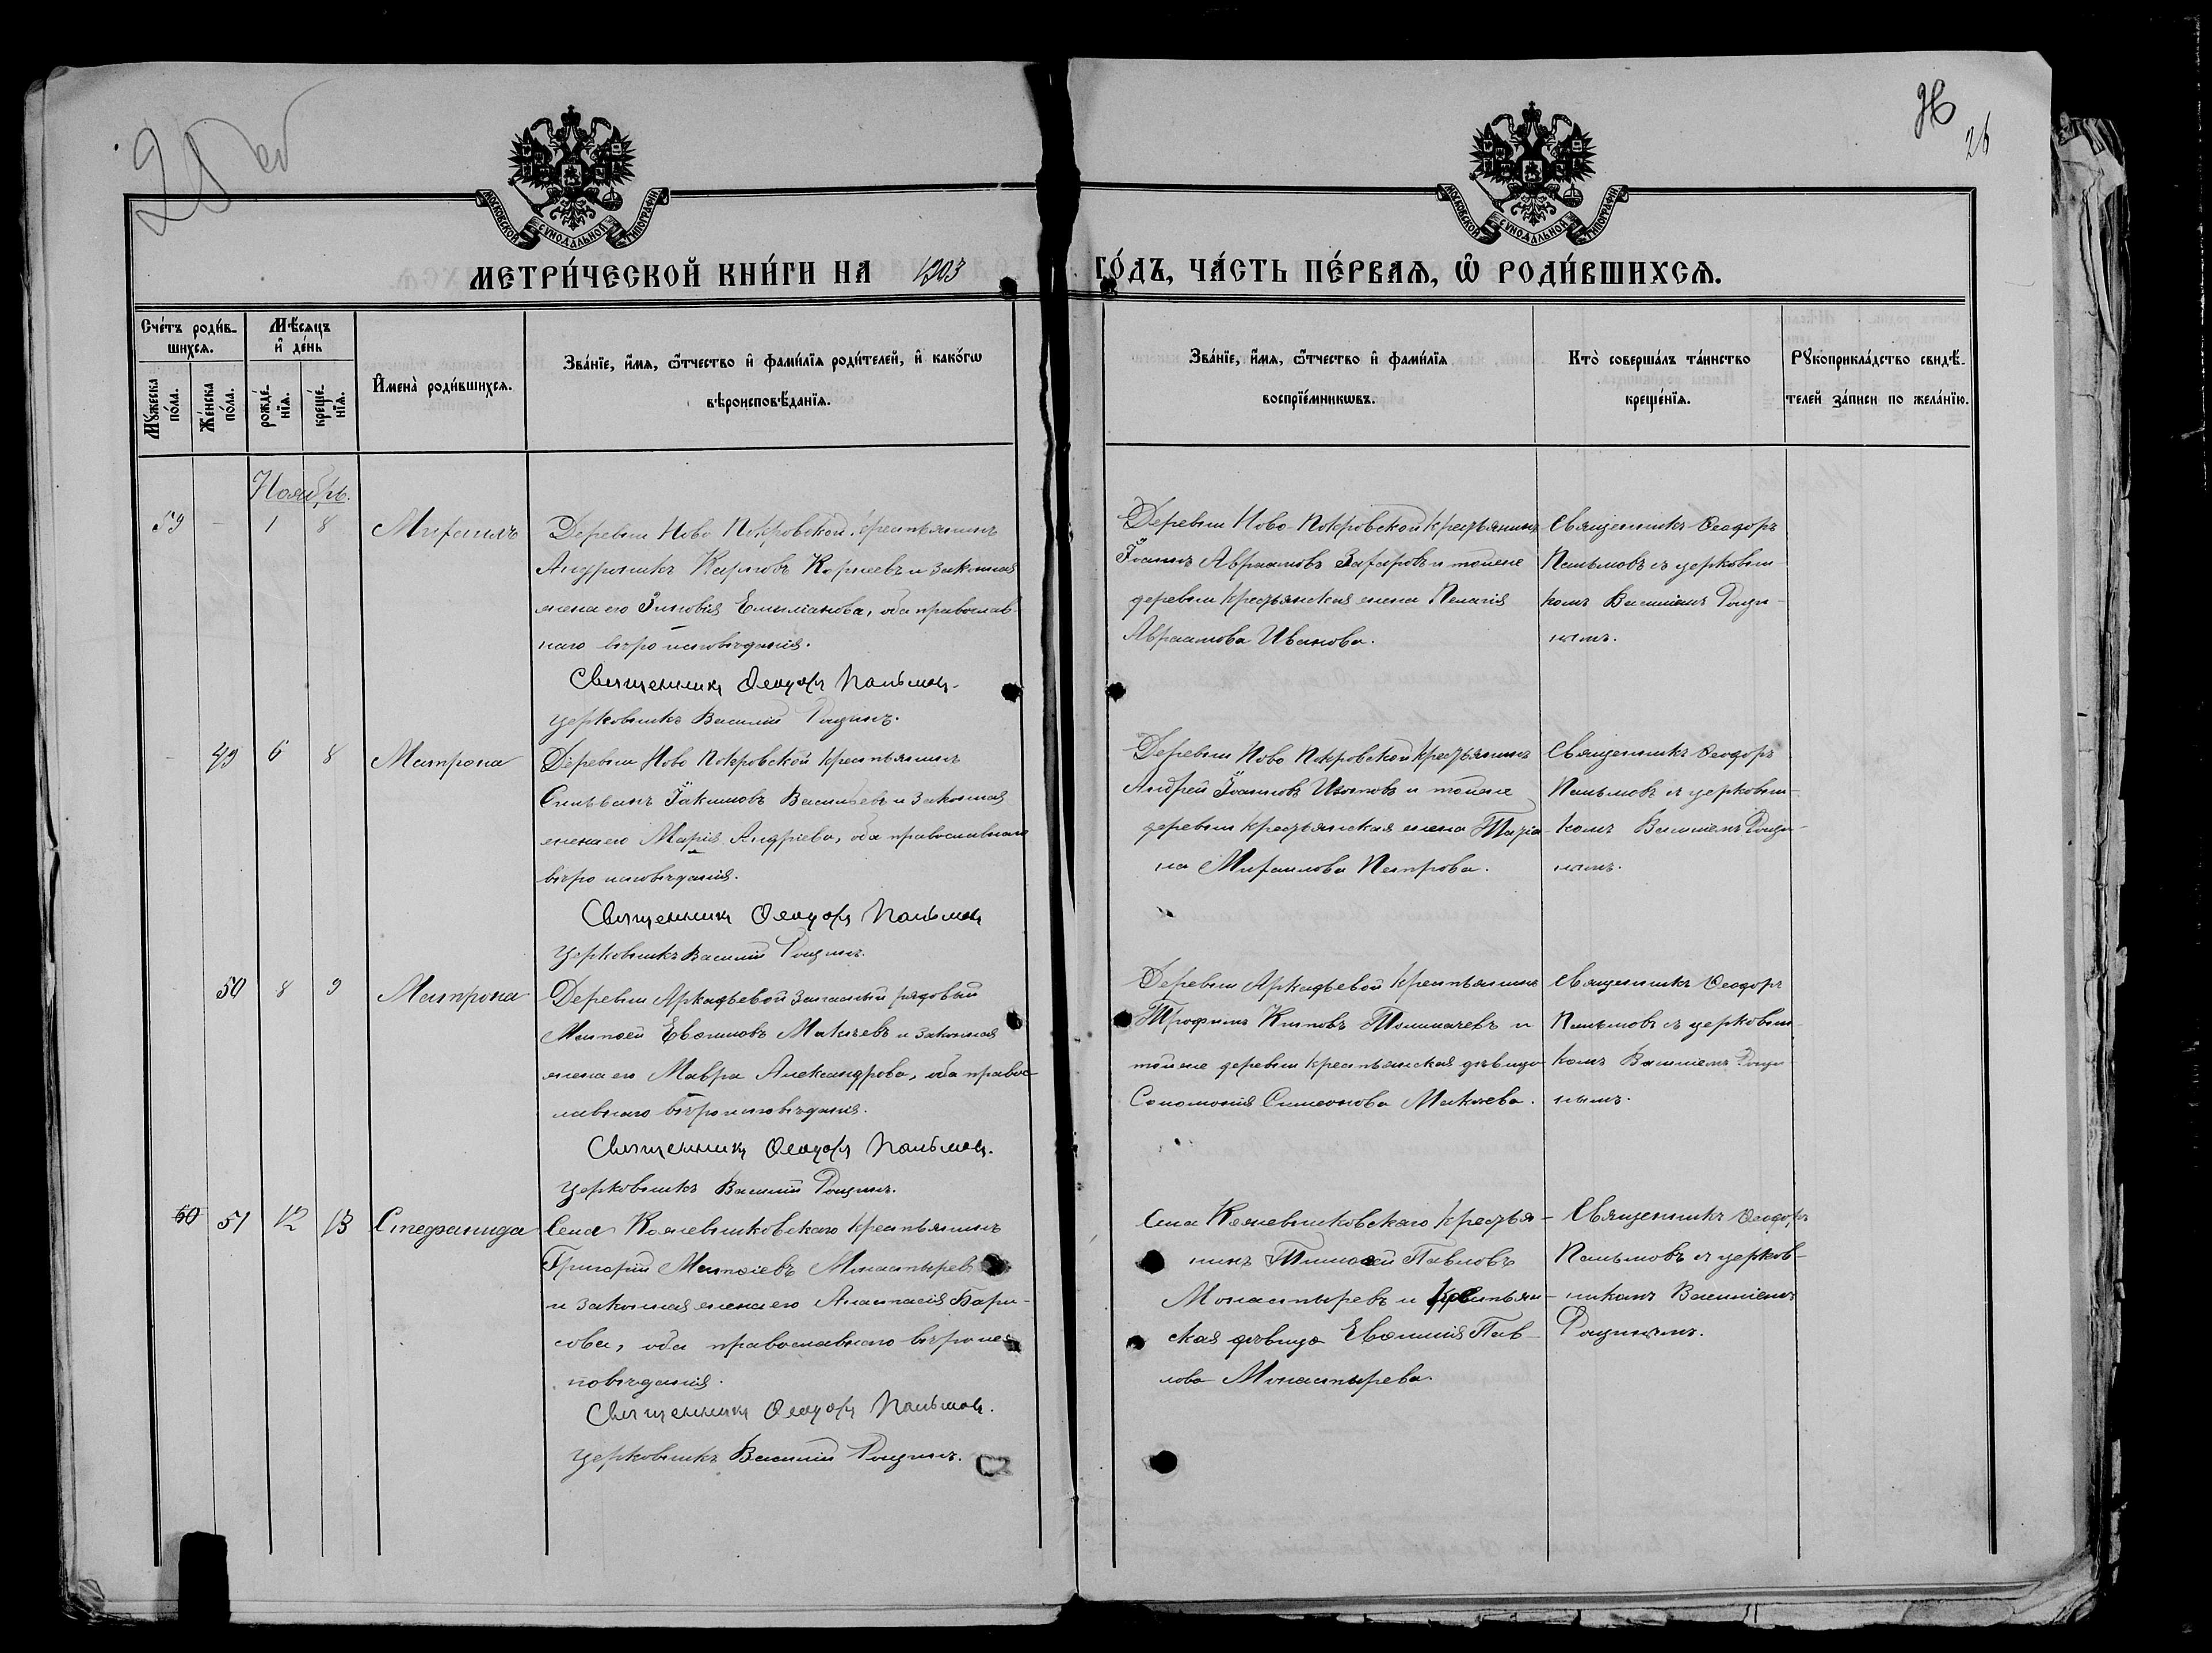 26
МОСКОВСКОЙ СУНОДАЛЬНОЙ ТИПОГРАФІИ
МОСКОВСКОЙ СУНОДАЛЬНОЙ ТИПОГРАФІИ
МЕТРИ́ЧЕСКОЙ КНИ́ГИ НА 1903 ГО́ДЪ, ЧА́СТЬ ПЕ́РВАѦ, Ѡ҆ РОДИ́ВШИХСѦ.
Сче́тъ роди́в-
шихсѧ.
Мꙋ́жеска по́ла.
Же́нска по́ла.
Мѣ́сѧцъ
и҆ де́нь
рожде́-
нїѧ.
креще́-
нїѧ.
И҆мена̀ роди́вшихсѧ.
Зва́нїе, и҆́мѧ, ѻ҆́тчество и҆ фами́лїѧ роди́телей, и҆ како́гѡ
вѣроисповѣ́данїѧ.
Зва́нїе, и҆́мѧ, ѻ҆́тчество и҆ фами́лїѧ
воспрїе́мникѡвъ.
Кто̀ соверша́лъ та́инство
креще́нїѧ.
Рꙋкоприкла́дство свидѣ́-
телей за́писи по жела́нїю.
Ноябрь.
59 - 1 8 Михаилъ
Деревни Ново Покровской крестьянинъ
Андроникъ Карповъ Корнеевъ и законная
жена его Зиновія Емиліанова, оба православ-
наго вѣроисповѣданія.
Священникъ Ѳеодоръ Пальмовъ.
Церковникъ Василій Рощинъ.
Деревни Ново Покровской крестьянинъ
Іоаннъ Авраамовъ Захаровъ и тойже
деревни крестьянская жена Пелагія
Авраамова Иванова.
Священникъ Ѳеодоръ
Пальмовъ съ церковни-
комъ Василіемъ Рощи-
нымъ.
- 49 6 8 Матрона
Деревни Ново Покровской крестьянинъ
Силъванъ Іакимовъ Васильевъ и законная
жена его Марія Андріева, оба православнаго
вѣроисповѣданія.
Священникъ Ѳеодоръ Пальмовъ
Церковникъ Василій Рощинъ.
Деревни Ново Покровской крестьянинъ
Андрей Іоанновъ и тойже
деревни крестьянская жена Татіа-
на Михаилова Петрова.
Священникъ Ѳеодоръ
Пальмовъ съ церковни-
комъ Василіемъ Рощи-
нымъ.
50 8 9 Матрона
Деревни Аркадьевой запасный рядовый
Матѳей Евѳимовъ Макѣевъ и законная
жена его Мавра Александрова, оба правос-
лавнаго вѣроисповѣданія.
Священникъ Ѳеодоръ Пальмовъ.
Церковникъ Василій Рощинъ.
Деревни Аркадьевой крестьянинъ
Трофимъ Толмачевъ и
тойже деревни крестьянская дѣвица
Соломонія Симеонова Макѣева.
Священникъ Ѳеодоръ
Пальмовъ съ церковни-
комъ Василіемъ Рощи-
нымъ.
60 51 12 13 Стефанида
Села Кожевниковскаго крестьянинъ
Григорій Матѳіевъ Монастыревъ
и законная жена его Анастасія Бори-
сова, оба православнаго вѣроис-
повѣданія.
Священникъ Ѳеодоръ Пальмовъ.
Церковникъ Василій Рощинъ.
Села Кожевниковскаго крестья-
нинъ Тимоѳей Павловъ
Монастыревъ и крестьян-
ская дѣвица Евѳимія Пав-
лова Монастырева.
Священникъ Ѳеодоръ
Пальмовъ съ церков-
никомъ Василіемъ
Рощинымъ.